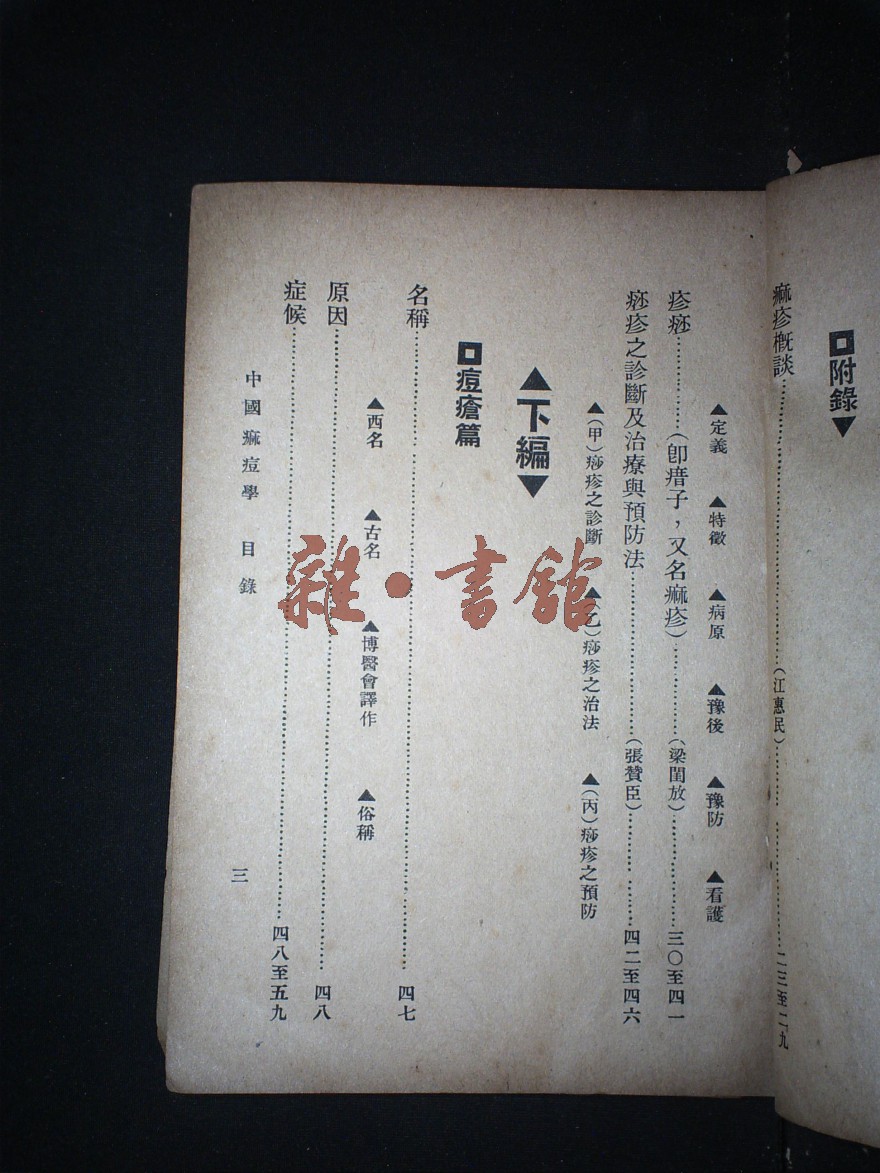 附錄
痲疹概談……(江惠民)……二三至二九
▲定義 ▲特徵 ▲病原 ▲豫後 ▲豫防 ▲看護
疹痧……(卽瘄子，又名痲疹)……(梁閨放)……三〇至四一
痧疹之診斷及治療與預防法……(張贊臣)……四二至四六
▲(甲)痧疹之診斷 ▲(乙)痧疹之治法 ▲(丙)痧疹之預防
▲下編▼
痘瘡篇
名稱……四七
▲西名 ▲古名 ▲博醫會譯作 ▲俗稱
原因……四八
症候……四八至五九
中國痲痘學 目錄
三
雜·書館